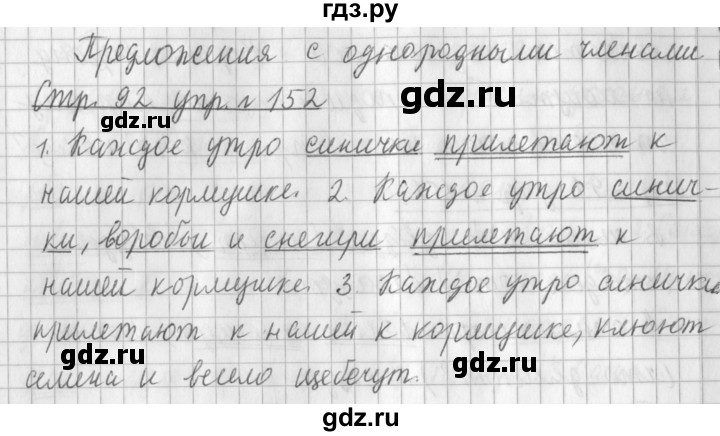 гдз.ру
Предложения с однородными членами
Стр. 92 упр. 152
1. Каждое утро синички прилетают к
нашей кормушке. 2. Каждое утро синич-
ки, воробьи и снегири прилетают к
нашей кормушке. 3. Каждое утро синички
прилетают к нашей к кормушке, клюют
семена и весело щебечут.
gdz.ru
gdz.ru
gdz.ru
gdz.ru
gdz.ru
gdz.ru